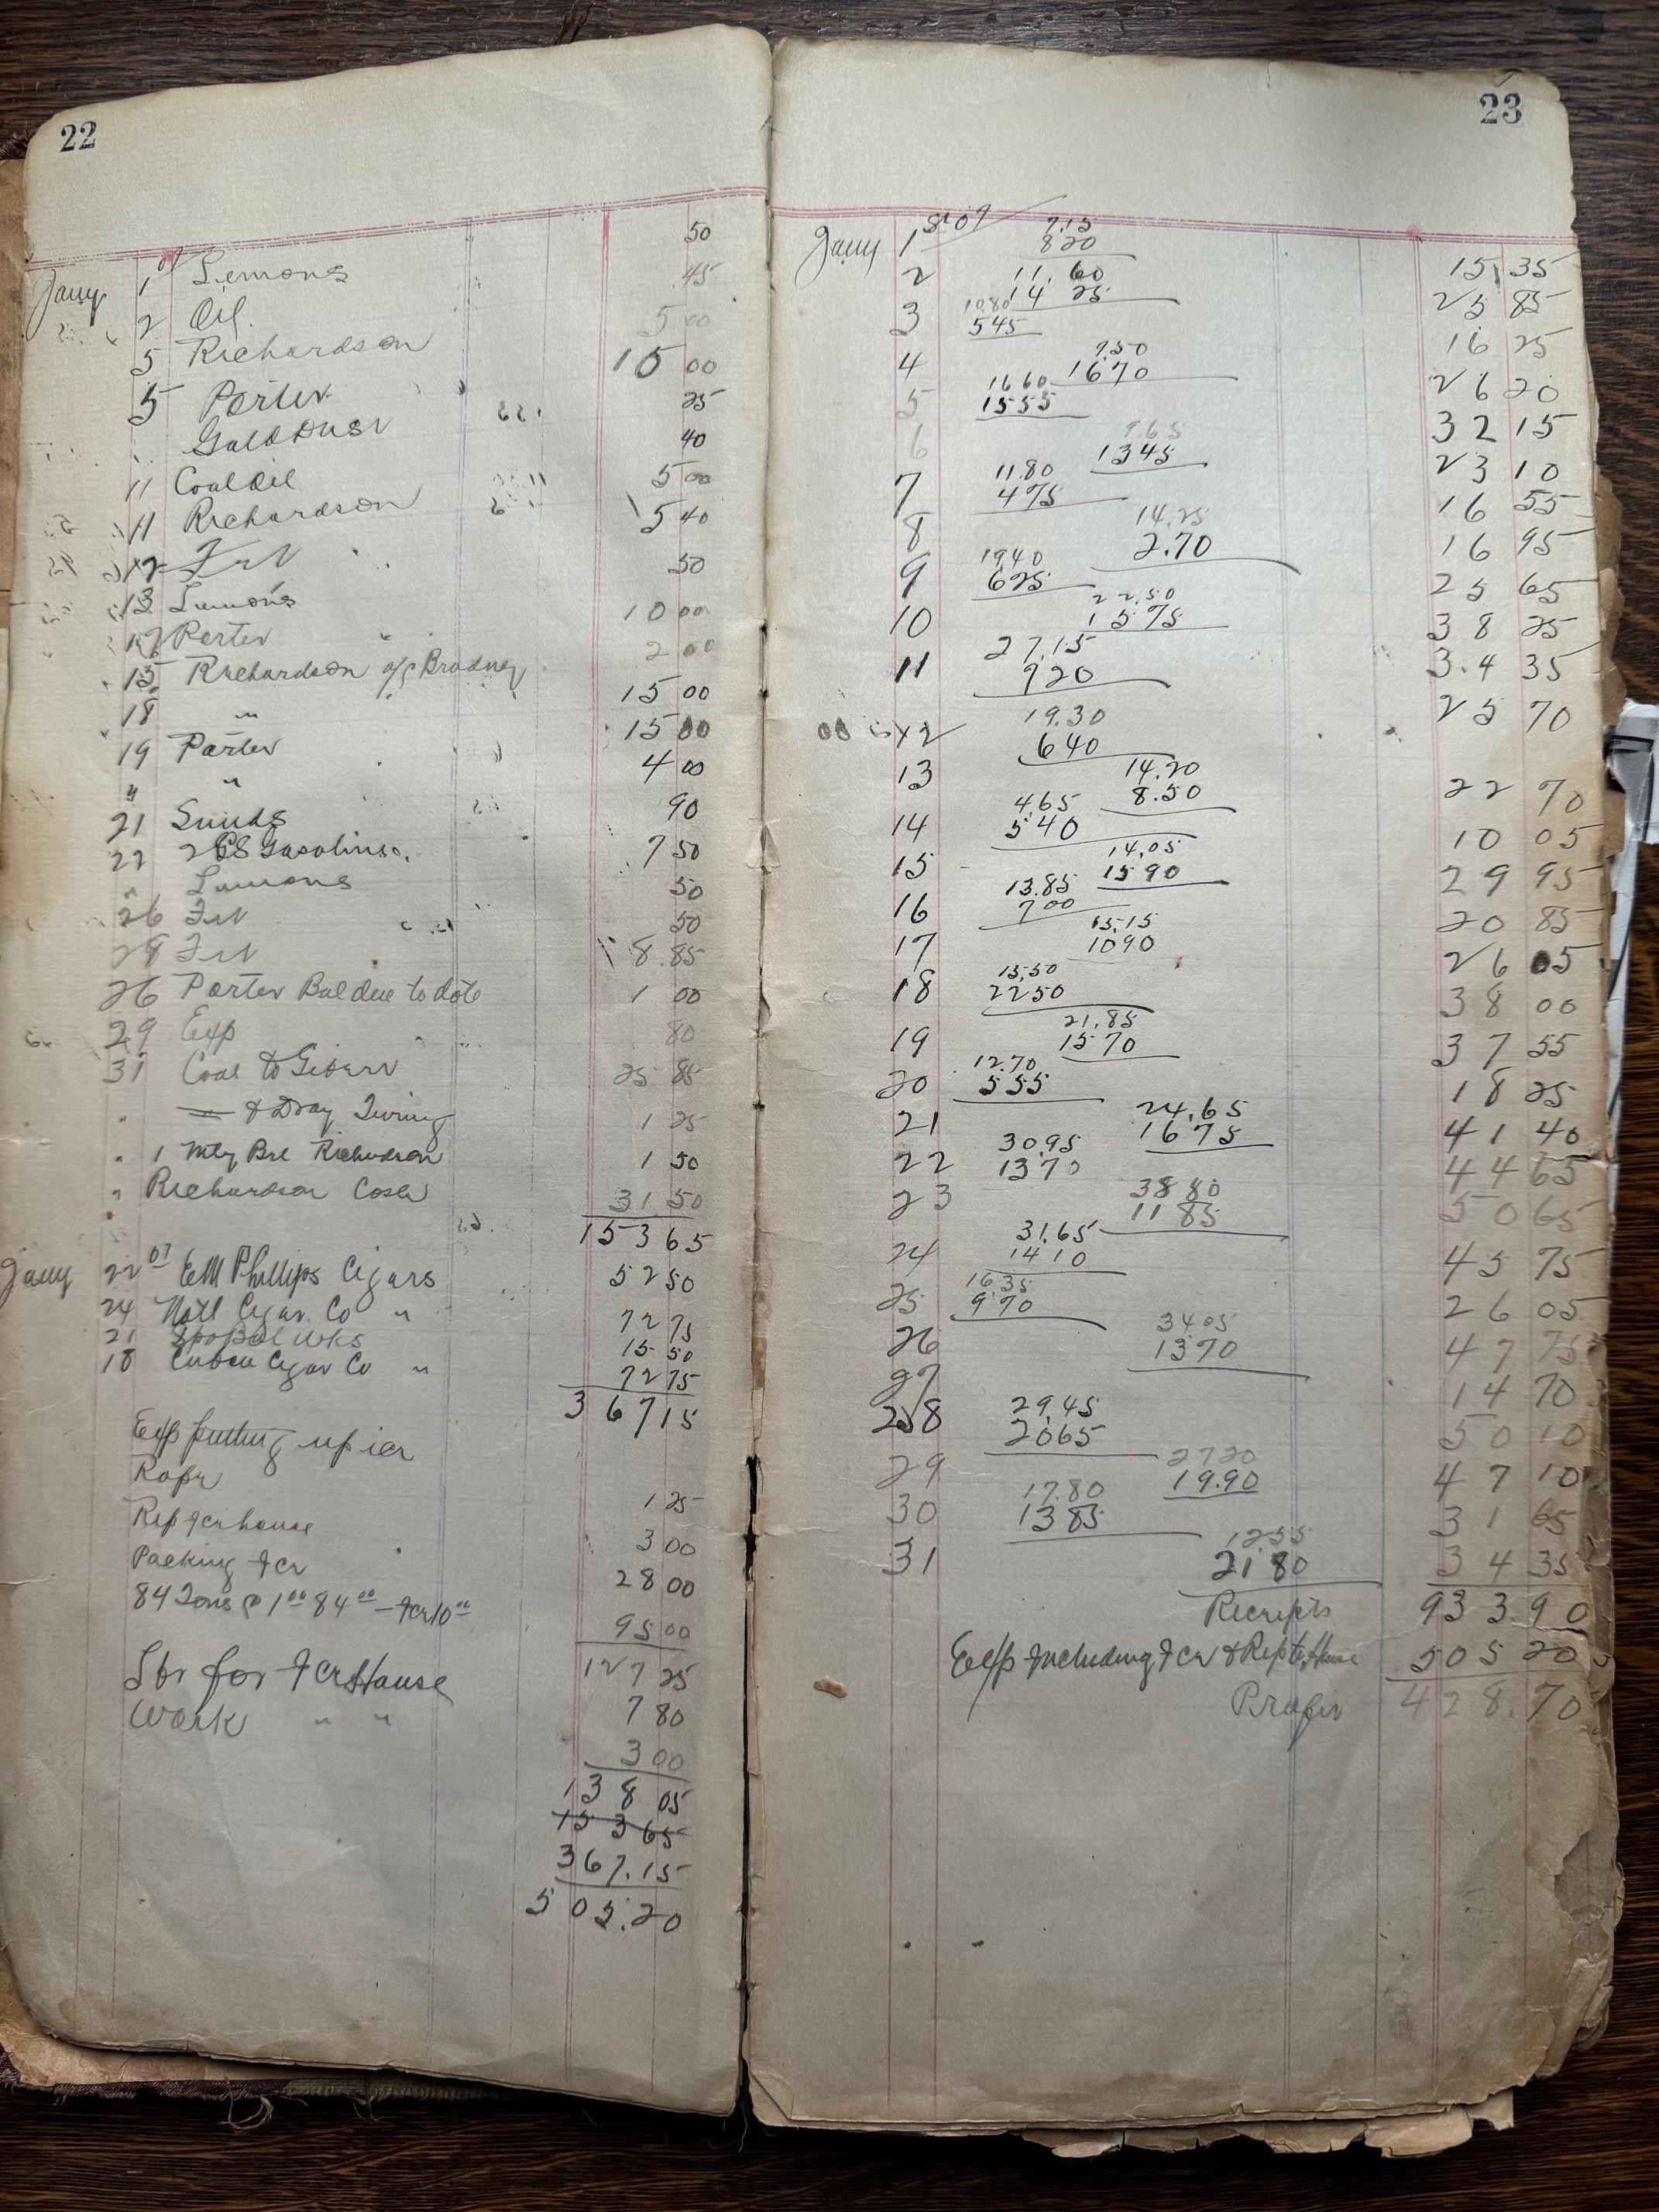 22
Jany 1 07 Lemons 50
2 Oil 45
5 Richardson 5 00
5 Porter 10 00
Gold Dust 25
11 Coal Oil 40
11 Richardson 5 00
12 Frt 5 40
13 Lemons 50
12 Porter 10 00
15 Richardson a/c Bradney 2 00
18 " 15 00
19 Porter 15 00
" " 4 00
21 Sunds 90
22 Gasoline. 7 50
" Lemons 50
26 Frt 50
28 Frt 8.85
26 Porter Bal due to date 1 00
29 Exp 80
31 Coal to 25 85
" & Dray 1 25
" 1 Mty Brl Richardson 1 50
" Richardson Cash 31.50
153 65
Jany 22 07 EM Phillips Cigars 52 50
24 Natl Cigar Co " 72 75
21 Wks 15 50
18 Cuban Cigar Co " 72 75
367 15
Exp putting up ice
Rope 1 25
Rep Icehouse 3 00
Packing Ice 28 00
84 Tons @ 1 00 84 00 - Ice 10 00 95 00
127 25
Lbr for Ice House 7 80
Work " " 3 00
138 05
153 65
367.15
505.20
23
Jany 1st 07 7.15
8 20 15 35
2 11.60
14 25 25 85
3 10 80
5 45 16 25
4 9.50
16 70 26 20
5 16 60
15 55 32 15
6 9.65
13 45 23 10
7 11.80
4 75 16 55
8 14.25
2.70 16 95
9 19 40
6 25 25 65
10 22.50
15 75 38 25
11 27.15
7 20 34 35
12 19.30
6 40 25 70
13 14.20
8.50 22 70
14 4.65
5 40 10 05
15 14.05
15 90 29 95
16 13.85
7 00 20 85
17 15.15
10 90 26 05
18 15.50
22 50 38 00
19 21.85
15 70 37 55
20 12.70
5 55 18 25
21 24.65
16 75 41 40
22 30.95
13 70 44 65
23 38 80
11 85 50 65
24 31.65
14 10 45 75
25 16.35
9 70 26 05
26 34 05
13 70 47 75
27 14 70
28 29.45
20 65 50 10
29 27 20
19.90 47 10
30 17.80
13 85 31 65
31 12.55
21 80 34 35
Receipts 933.90
Exp Including Ice & Rep to House 505 20
Profit 428.70